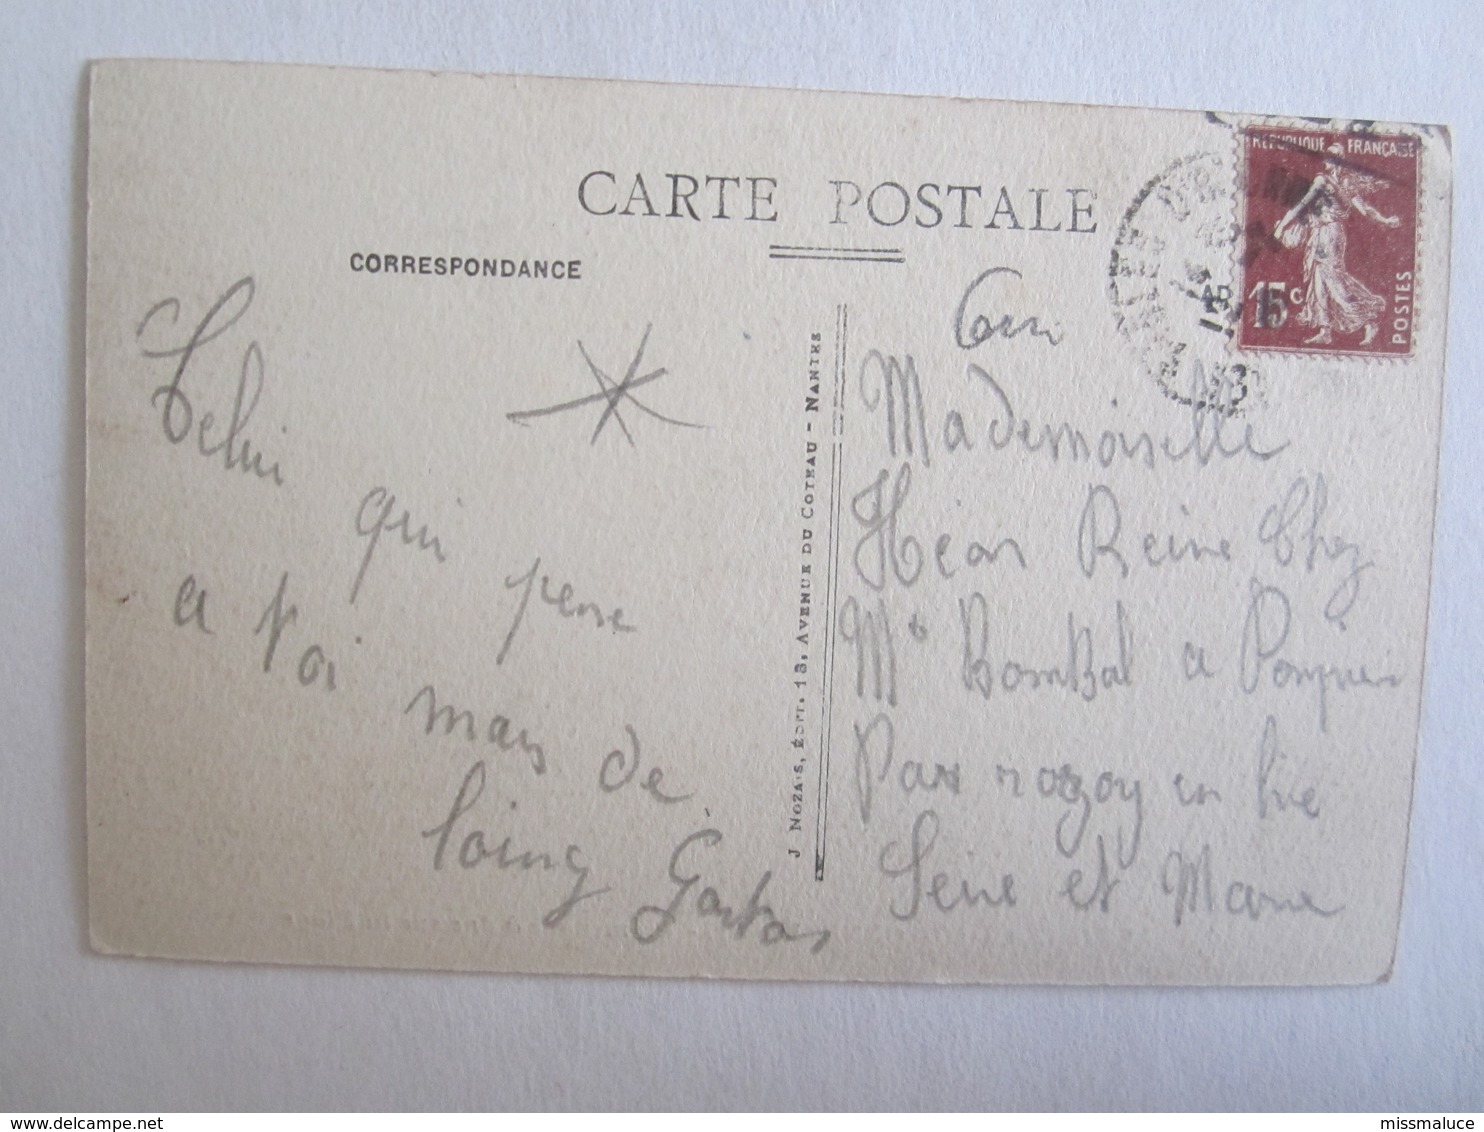 CARTE POSTALE
CORRESPONDANCE
Celui
qui pense
a toi mais de
loing Gaston
J NOZAIS, ÉDIT. 13, AVENUE DU COTEAU - NANTES
REPUBLIQUE FRANÇAISE
15c
POSTES
Mademoiselle
Héon Reine Chez
Mr Bombal a
Par rozoy en brie
Seine et Marne
missmaluce
delcampe.net